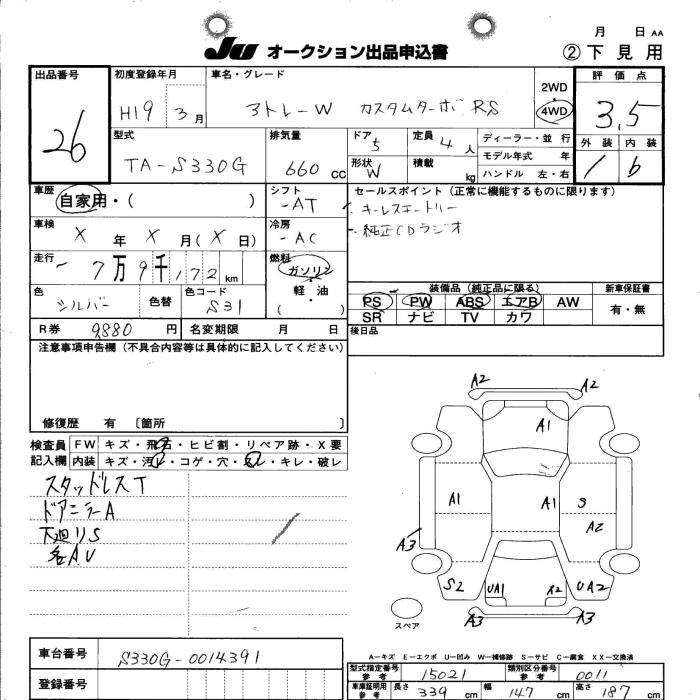 月 日 AA
JU オークション出品申込書 ②下見用
出品番号 初度登録年月 車名・グレード 2WD 4WD 評価点
26 H19 3月 アトレーW カスタムターボRS 3.5
型式 排気量 ドア 定員 ディーラー・並行 外装 内装
TA-S330G 660cc 5 4人 モデル年式 年 b
形状 積載 ハンドル 左・右
W kg
車歴 シフト セールスポイント(正常に機能するものに限ります)
自家用・( ) -AT キーレスエントリー
車検 冷房 純正CDラジオ
X年X月(X日) -AC
走行 燃料
-7万9千172km ガソリン 装備品(純正品に限る) 新車保証書
色 色替 色コード 軽・油 PS PW ABS エアB AW 有・無
シルバー S31 ( ) SR ナビ TV カワ
R券 9880円 名変期限 月 日 後日品
注意事項申告欄(不具合内容等は具体的に記入してください)
修復歴 有 〔箇所 〕
検査員 FW キズ・飛石・ヒビ割・リペア跡・X要
記入欄 内装 キズ・汚レ・コゲ・穴・キレ・破レ
スタッドレスT
ドアミラーA
下廻リS
各AU
A2 A2
A1
A1 A1 S
A2
A3
S2 UA1 A2 UA2
A3 A3
スペア
A-キズ E-エクボ U-凹み W-補修跡 S-サビ C-腐食 XX-交換済
車台番号 S330G-0014391
登録番号
型式指定番号 参考 15021 類別区分番号 参考 0011
車庫証明用 参考 長さ 339cm 幅 147cm 高さ 187cm